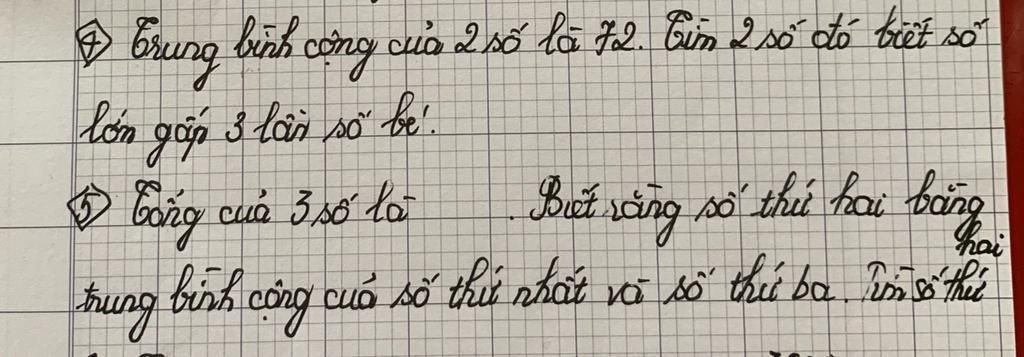 ④ Trung bình cộng của 2 số là 72. Tìm 2 số đó biết số
lớn gấp 3 lần số bé.
⑤ Tổng của 3 số là . Biết rằng số thứ hai bằng
trung bình cộng của số thứ nhất và số thứ ba. Tìm số thứ hai